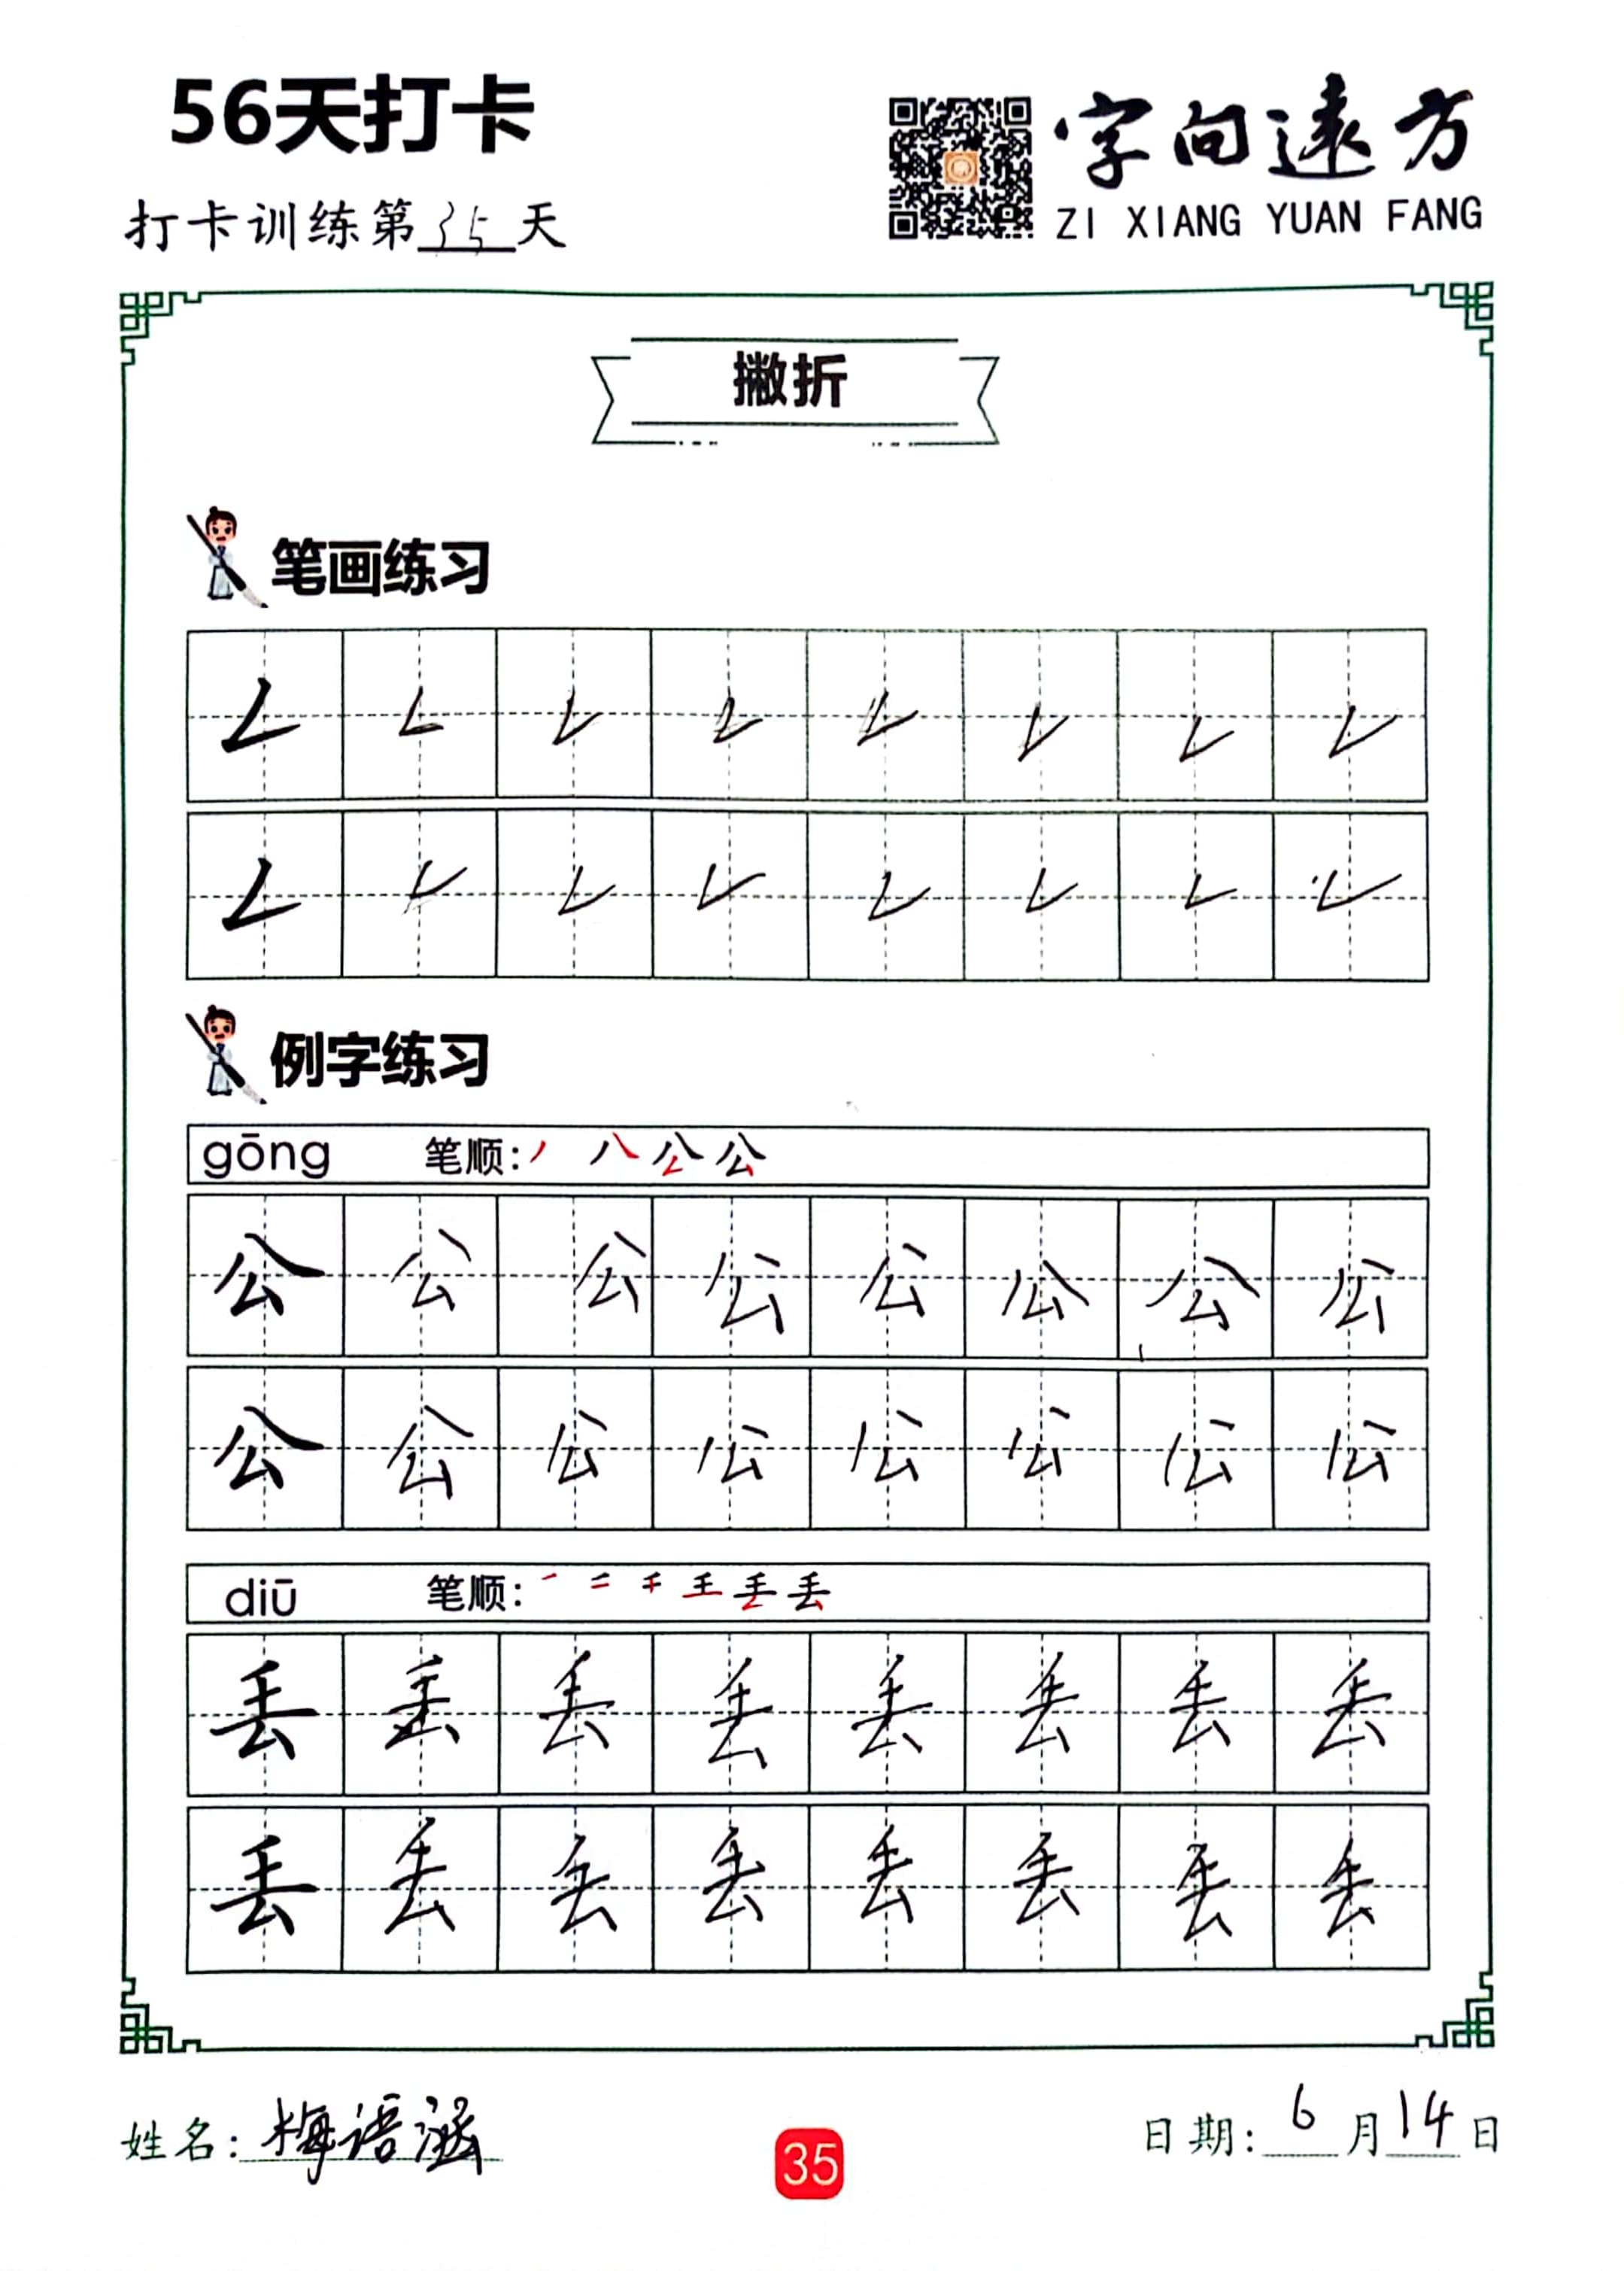 56天打卡
字向遠方
ZI XIANG YUAN FANG
打卡训练第35天
撇折
笔画练习
𠃋 𠃋 𠃋 𠃋 𠃋 𠃋 𠃋 𠃋
𠃋 𠃋 𠃋 𠃋 𠃋 𠃋 𠃋 𠃋
例字练习
gōng 笔顺: 丿 八 公 公
公 公 公 公 公 公 公 公
公 公 公 公 公 公 公 公
diū 笔顺: 一 二 千 王 丢 丢
丢 丢 丢 丢 丢 丢 丢 丢
丢 丢 丢 丢 丢 丢 丢 丢
姓名: 梅语涵
日期: 6月14日
35